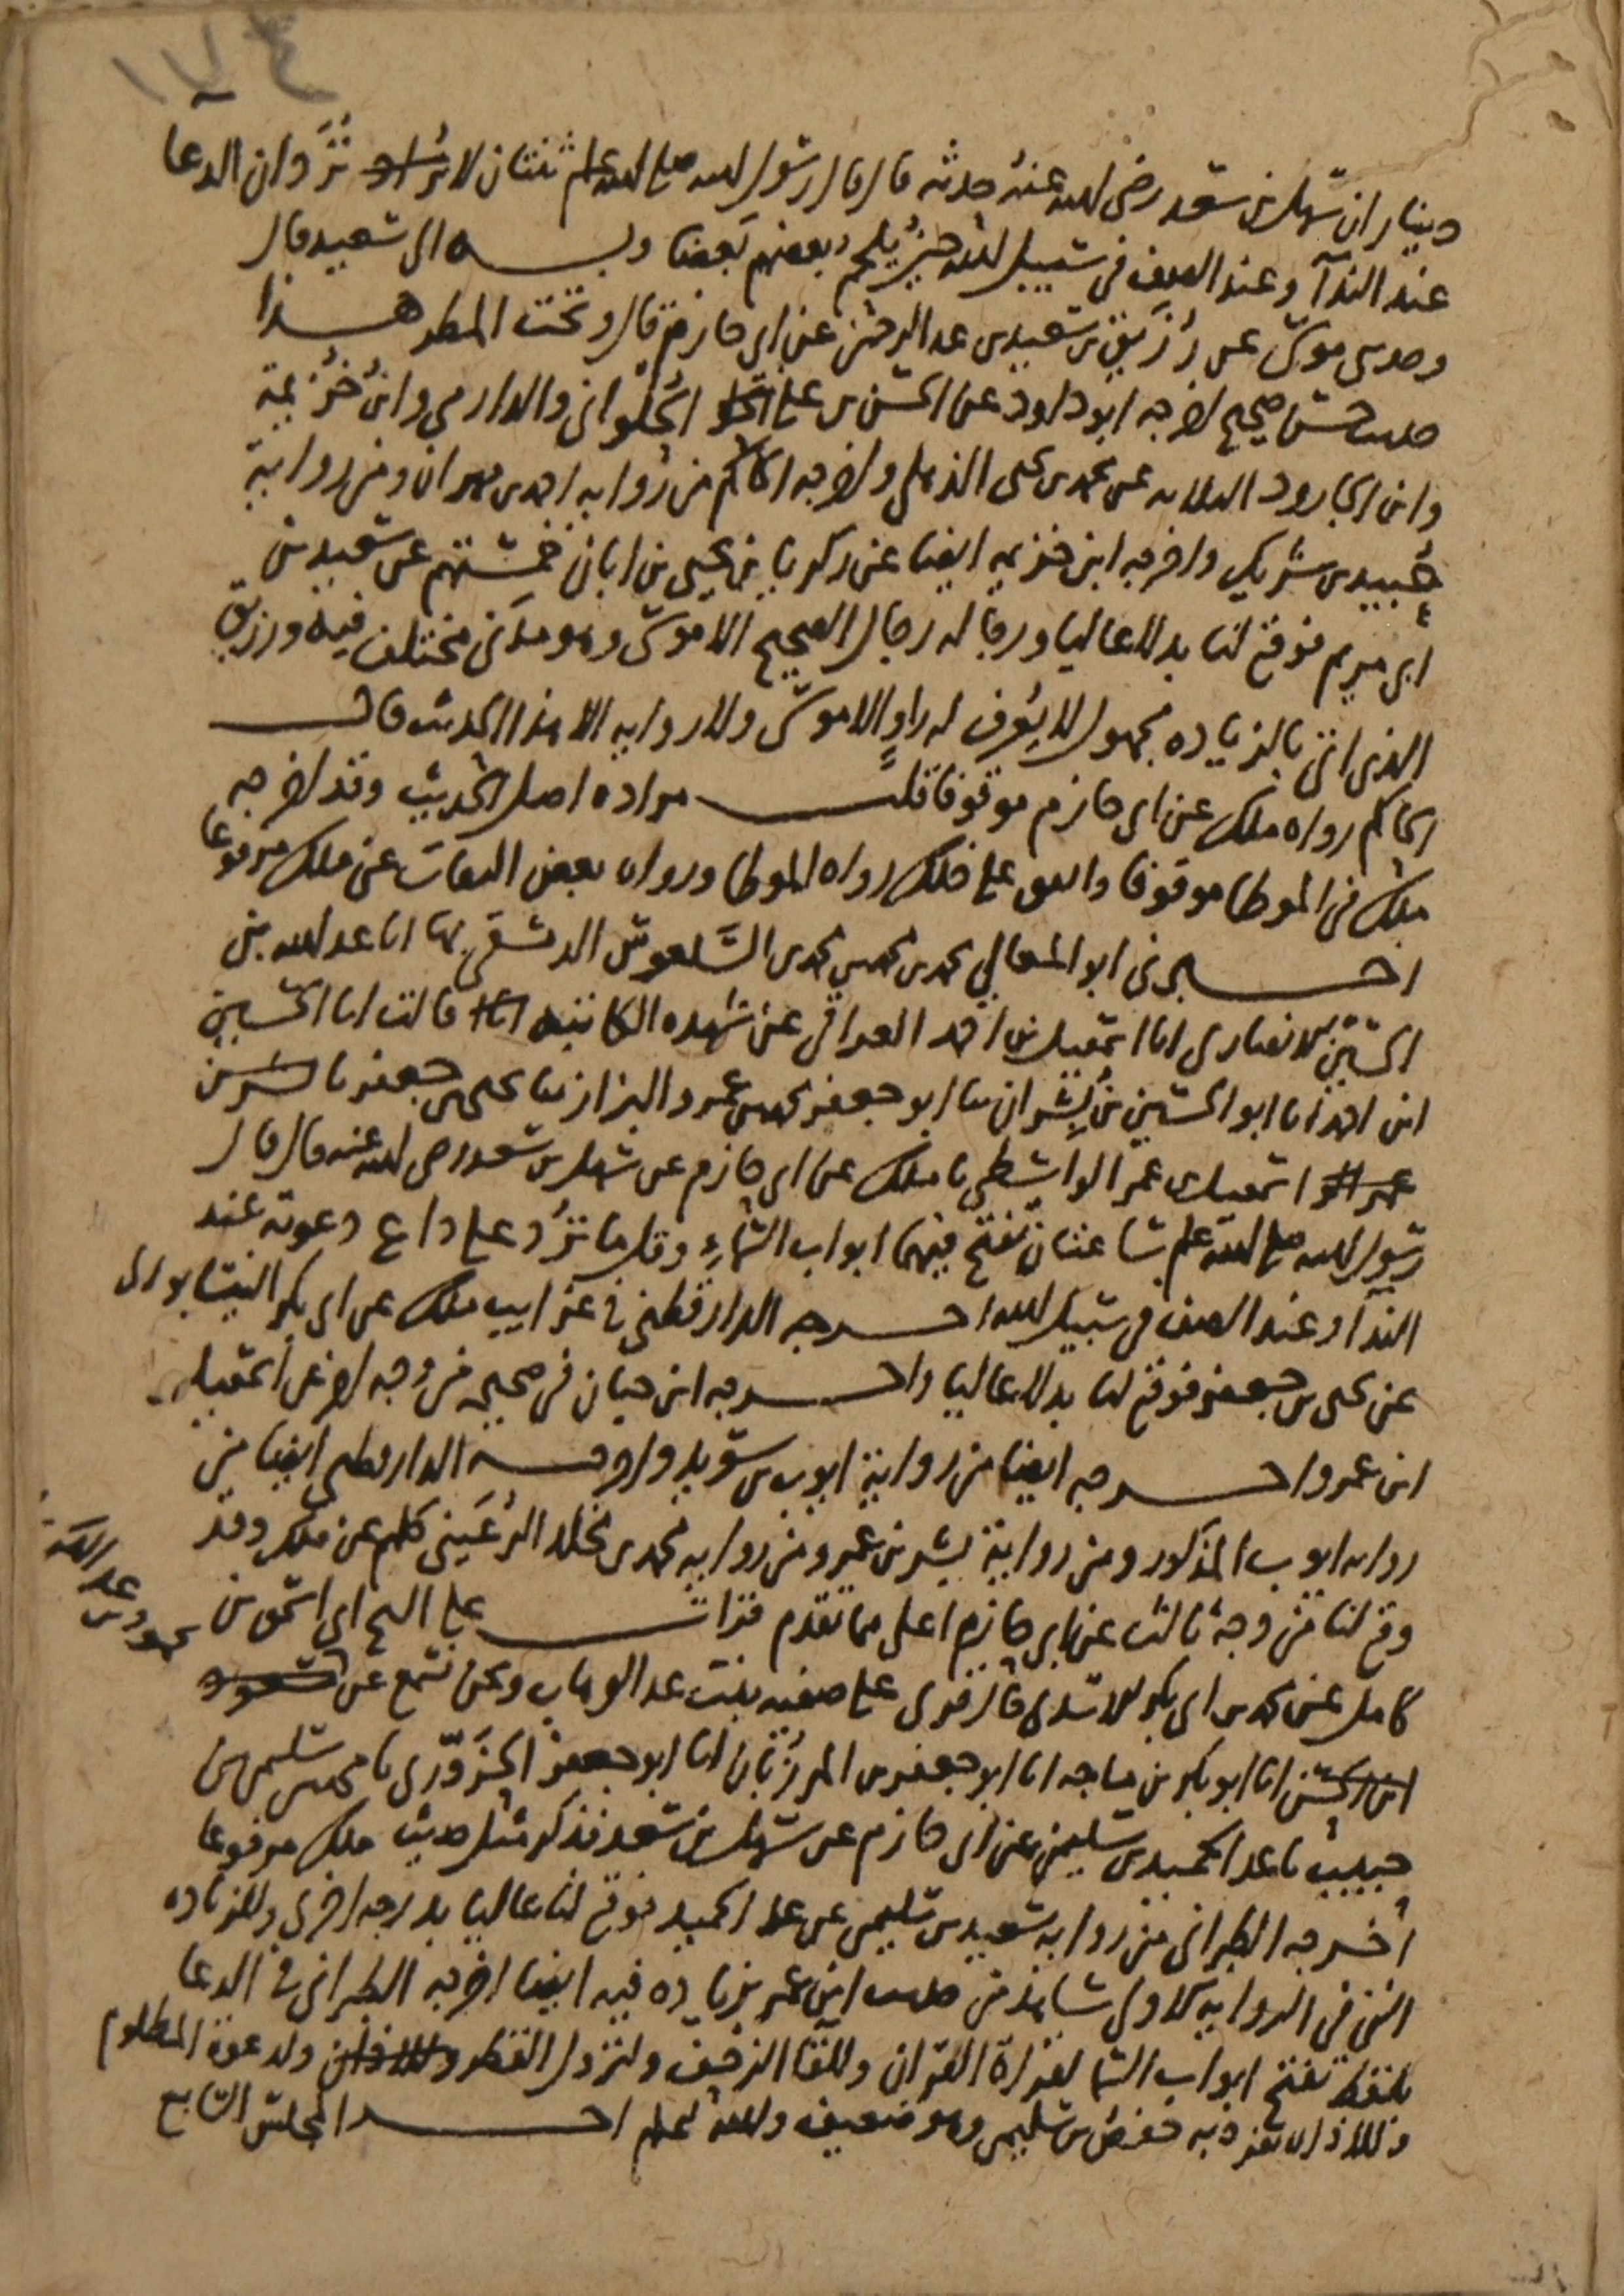 ١٧٤
دينار ان سهل بن سعد رضي الله عنه حدثه قال قال رسول الله صلى الله عليه وسلم ثنتان لا تُرَدَّان الدعا
عند الندآ وعند الصف في سبيل الله حين يلحم بعضهم بعضا وبه الى سعيد قال
وحدثني موسى عن رزيق بن سعيد بن عبد الرحمن عن ابي حازم قال وتحت المطر هذا
حديث حسن صحيح اخرجه ابو داود عن الحسن بن علي الحلواني والدارمي وابن خزيمة
وابن الجارود الثلاثة عن محمد بن يحيى الذهلي واخرجه الحاكم من رواية احمد بن مهران ومن رواية
عُبيد بن شريك واخرجه ابن خزيمه ايضا عن زكريا بن يحيى بن ابان خمستهم عن سعيد بن
ابي مريم فوقع لنا بدلا عاليا ورجاله رجال الصحيح الا موسى وهو مدني مختلف فيه ورزيق
الذي اتى بالزياده مجهول لا يعرف له راوٍ الا موسى ولا روايه الا هذا الحديث قال
الحاكم رواه ملك عن ابي حازم موقوفا قلت مراده اصل الحديث وقد اخرجه
ملك في الموطا موقوفا واتفق على ذلك رواه الموطا ورواه بعض الثقات عن ملك مرفوعا
اخبرني ابو المعالي محمد بن محمد بن محمد السلعوس الدمشقي بها انا عبد الله بن
الحسين الانصاري انا اسمعيل بن احمد العراقي عن شهده الكاتبه قالت انا الحسين
ابن احمد انا ابو الحسين بن بِشران ثنا ابو جعفر محمد بن عمرو البزاز ثنا يحيى بن جعفر نا
اسمعيل بن عمر الواسطي نا ملك عن ابي حازم عن سهل بن سعد رضي الله عنه قال قال
رسول الله صلى الله عليه وسلم ساعتان تفتح فيهما ابواب السماء وقل ما تُرَد على داع دعوته عند
الندآ وعند الصف في سبيل الله اخرجه الدارقطني في غرايب ملك عن ابي بكر النيسابوري
عن يحيى بن جعفر فوقع لنا بدلا عاليا واخرجه ابن حبان في صحيحه من وجه اخر عن اسمعيل
ابن عمر واخرجه ايضا من رواية ايوب بن سويد واخرجه الدارقطني ايضا من
رواية ايوب المذكور ومن رواية بشر بن عمر ومن روايه محمد بن مخلد الرُعَيني كلهم عن ملك وقد
وقع لنا من وجه ثالث عن ابي حازم اعلى مما تقدم قرات على الشيخ ابي اسحق بن
كامل عن محمد بن ابي بكر الاسدي قال قرى على صفيه بنت عبد الوهاب ونحن نسمع عن
محمود بن عبد الله
انا ابو بكر بن ماجه انا ابو جعفر بن المرزبان انا ابو جعفر الحَزَوَّرى نا محمد بن سليمن بن
حبيب نا عبد الحميد بن سليمن عن ابي حازم عن سهل بن سعد فذكر مثل حديث ملك مرفوعا
اخرجه الطبراني من روايه سعيد بن سليمن عن عبد الحميد فوقع لنا عاليا بدرجه اخرى وللزياده
التي في الروايه الاولى شاهد من حديث ابن عمر بزياده فيه ايضا اخرجه الطبراني في الدعا
بلفظ تفتح ابواب السما لقراة القران وللقا الزحف ولنزول القطر ولدعوة المظلوم
وللاذان تفرد به حفص بن سليمن وهو ضعيف والله اعلم اخر المجلس السابع